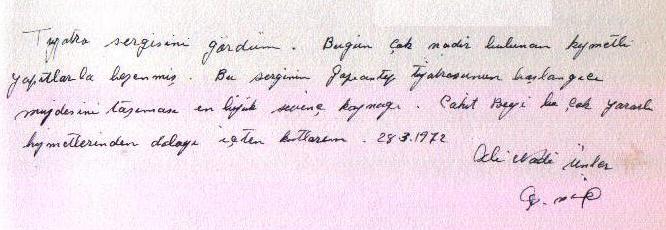 Tiyatro sergisini gördüm. Bugün çok nadir bulunan kıymetli
yapıtlarla bezenmiş. Bu serginin Gaziantep Tiyatrosunun başlangıcı
müjdesini taşıması en büyük sevinç kaynağı. Cahit Beyi bu çok yararlı
hizmetlerinden dolayı içten kutlarım. 28.3.1972
Ali Nadi Ünler